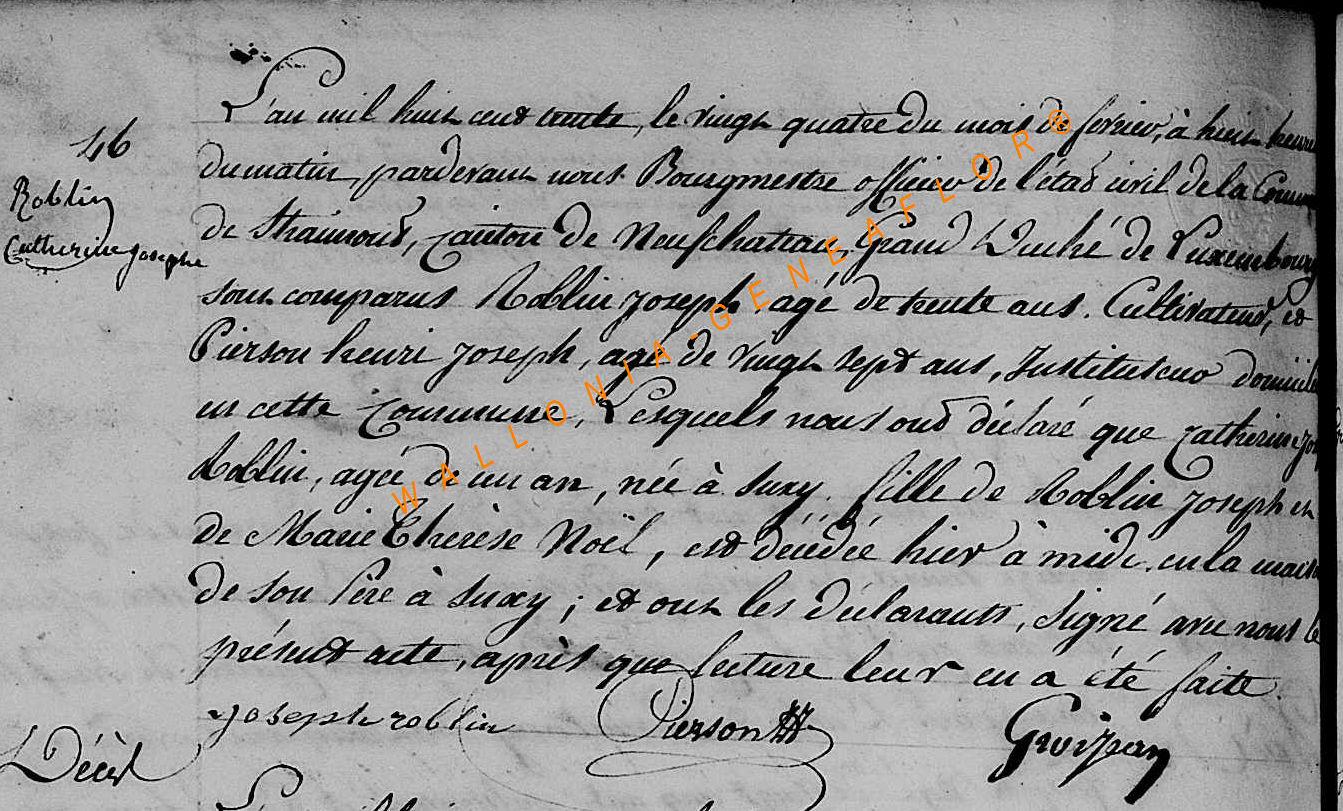 46
Roblin
Catherine Josephe
L'an mil huit cent trente, le vingt quatre du mois de fevrier, à huit heures
du matin, pardevant nous Bourgmestre officier de l'état civil de la Commune
de Straimont, canton de Neufchateau, Grand Duché de Luxembourg
sont comparus Roblin Joseph, agé de trente ans. Cultivateur, et
Pierson henri Joseph, agé de vingt sept ans, Instituteur domicilié
en cette Commune, Lesquels nous ont déclaré que Catherine Jos
Roblin, agée de un an, née à Suxy. fille de Roblin Joseph et
de Marie Therèse Noël, est décédée hier à midi, en la maison
de son Père à Suxy ; et ont les déclarants, signé avec nous le
présent acte, après que lecture leur en a été faite.
joseph roblin Pierson
Décès
WALLONIA-GENEAFLOR®